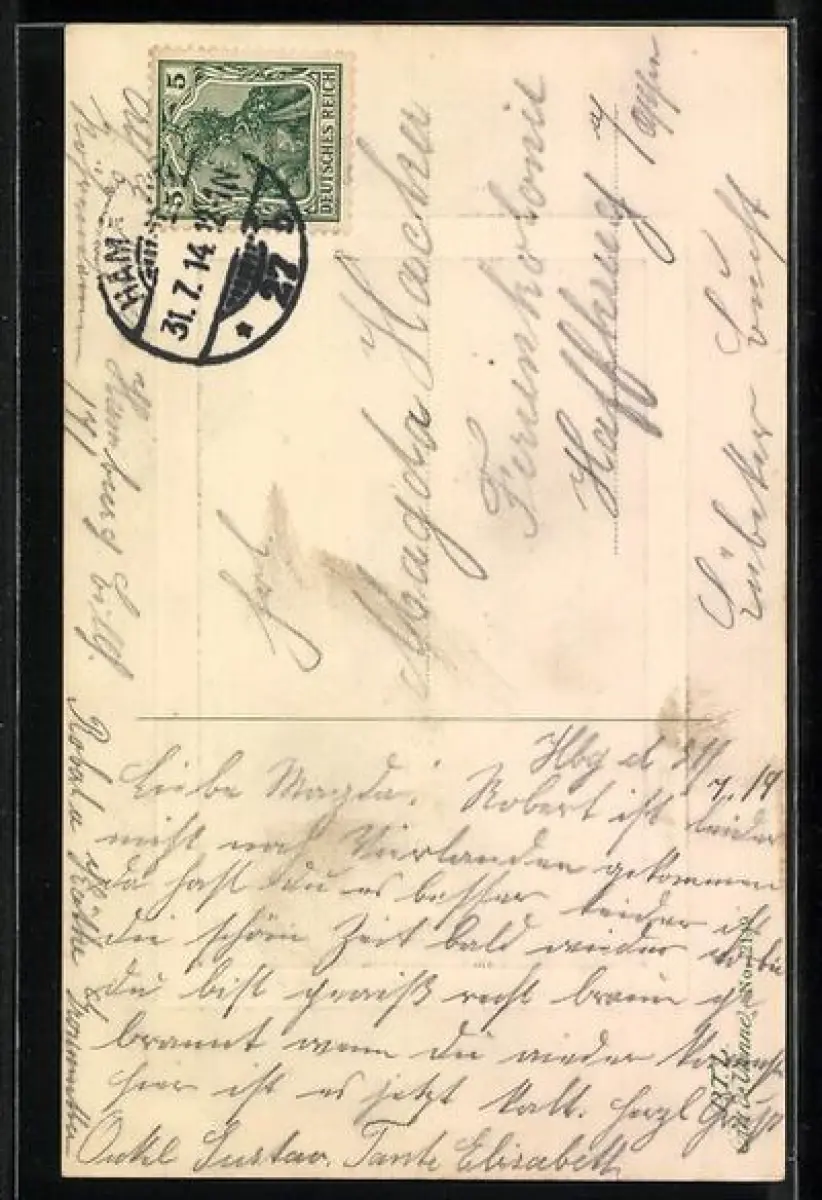 DEUTSCHES REICH
5 5
HAM
31.7.14.
* 27 b
Frl.
Magda Hacker
Ferienkolonie
Haffkrug
Lübeker Bucht
Hbg d 31/7.14
Liebe Magda. Robert ist leider
nicht nach Vierlanden gekommen
da hast du es besser leider ist
die schöne Zeit bald wieder vorbei
du bist gewiß recht braun ge
brannt wenn du wieder kommst
hier ist es jetzt kalt. Herzl Gruß
Onkel Gustav. Tante Elisabeth
Hamburg